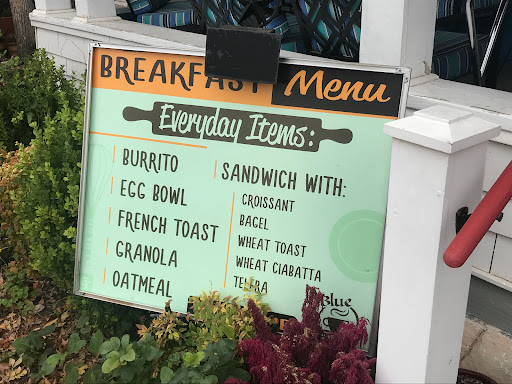 BREAKFAST Menu
Everyday Items:
BURRITO
EGG BOWL
FRENCH TOAST
GRANOLA
OATMEAL
SANDWICH WITH:
CROISSANT
BAGEL
WHEAT TOAST
WHEAT CIABATTA
TELERA
Blue